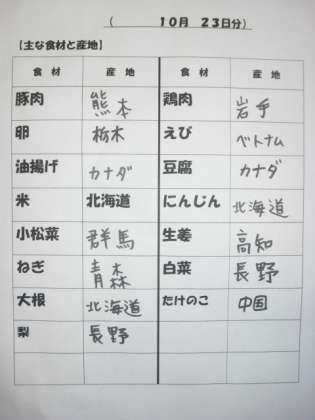 （　10月　23日分）
【主な食材と産地】
食材 産地 食材 産地
豚肉 熊本 鶏肉 岩手
卵 栃木 えび ベトナム
油揚げ カナダ 豆腐 カナダ
米 北海道 にんじん 北海道
小松菜 群馬 生姜 高知
ねぎ 青森 白菜 長野
大根 北海道 たけのこ 中国
梨 長野